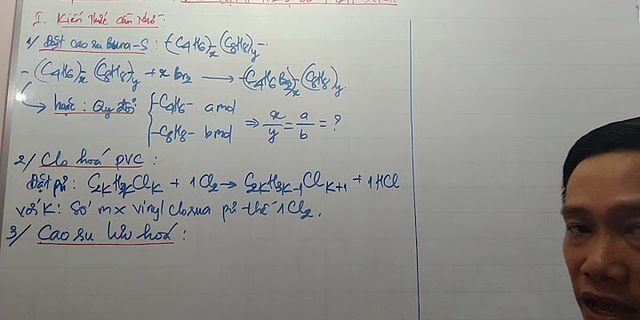 I. Kiến Thức Cần Nhớ:
1/ Đặt cao su Buna-S: -(C4H6)x-(C8H8)y-
-(C4H6)x-(C8H8)y + xBr2 → -(C4H6Br2)x-(C8H8)y
hoặc: Quy đổi { -C4H6- a mol
-C8H8- b mol ⇒ x/y = a/b = ?
2/ Clo hoá PVC:
Đặt pứ: C2kH3kClk + 1Cl2 → C2kH3k-1Clk+1 + 1HCl
với K: Số mx vinyl clorua pứ thế 1Cl2.
3/ Cao su lưu hoá: